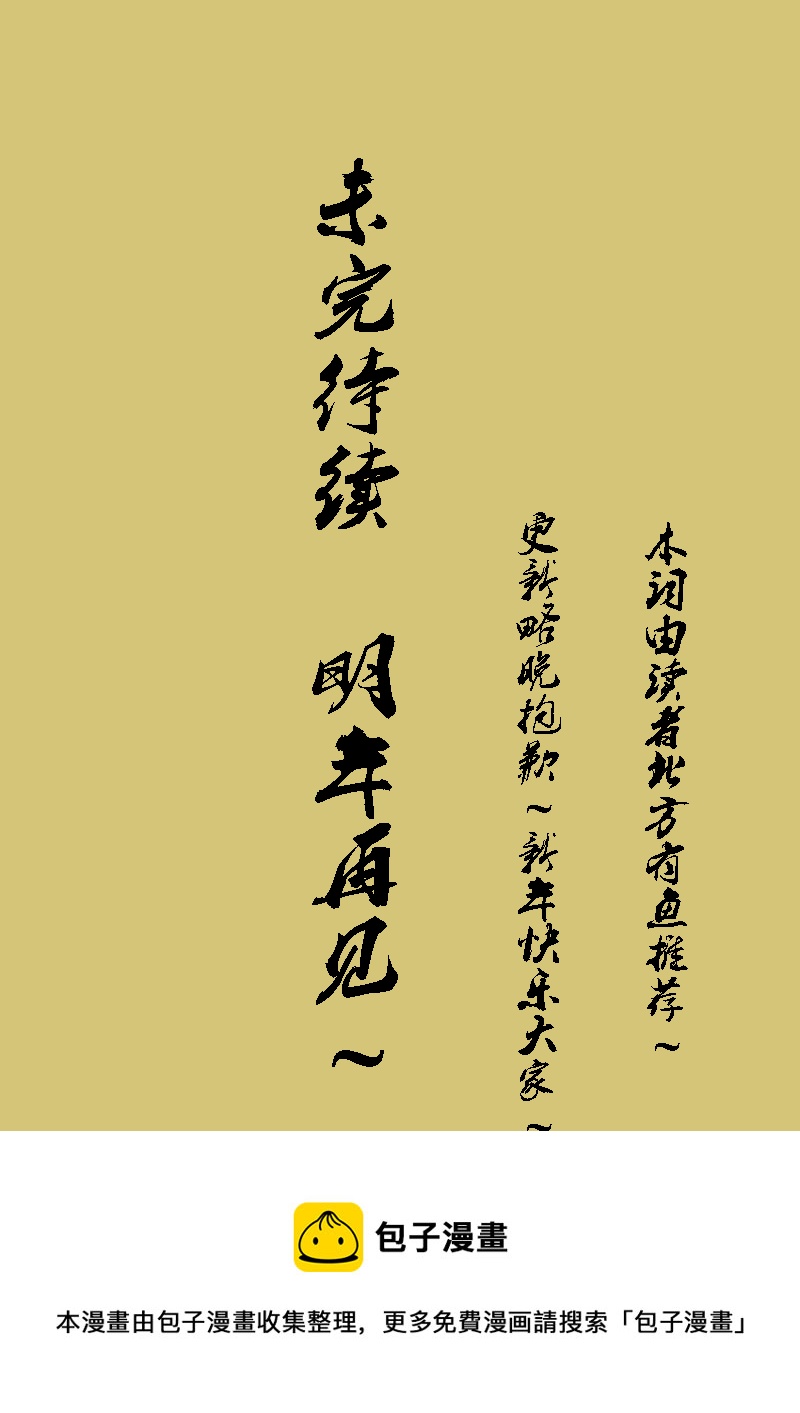 本词由读者北方有鱼推荐~
更新略晚抱歉~新年快乐大家~
未完待续 明年再见~
包子漫畫
本漫畫由包子漫畫收集整理，更多免費漫画請搜索「包子漫畫」